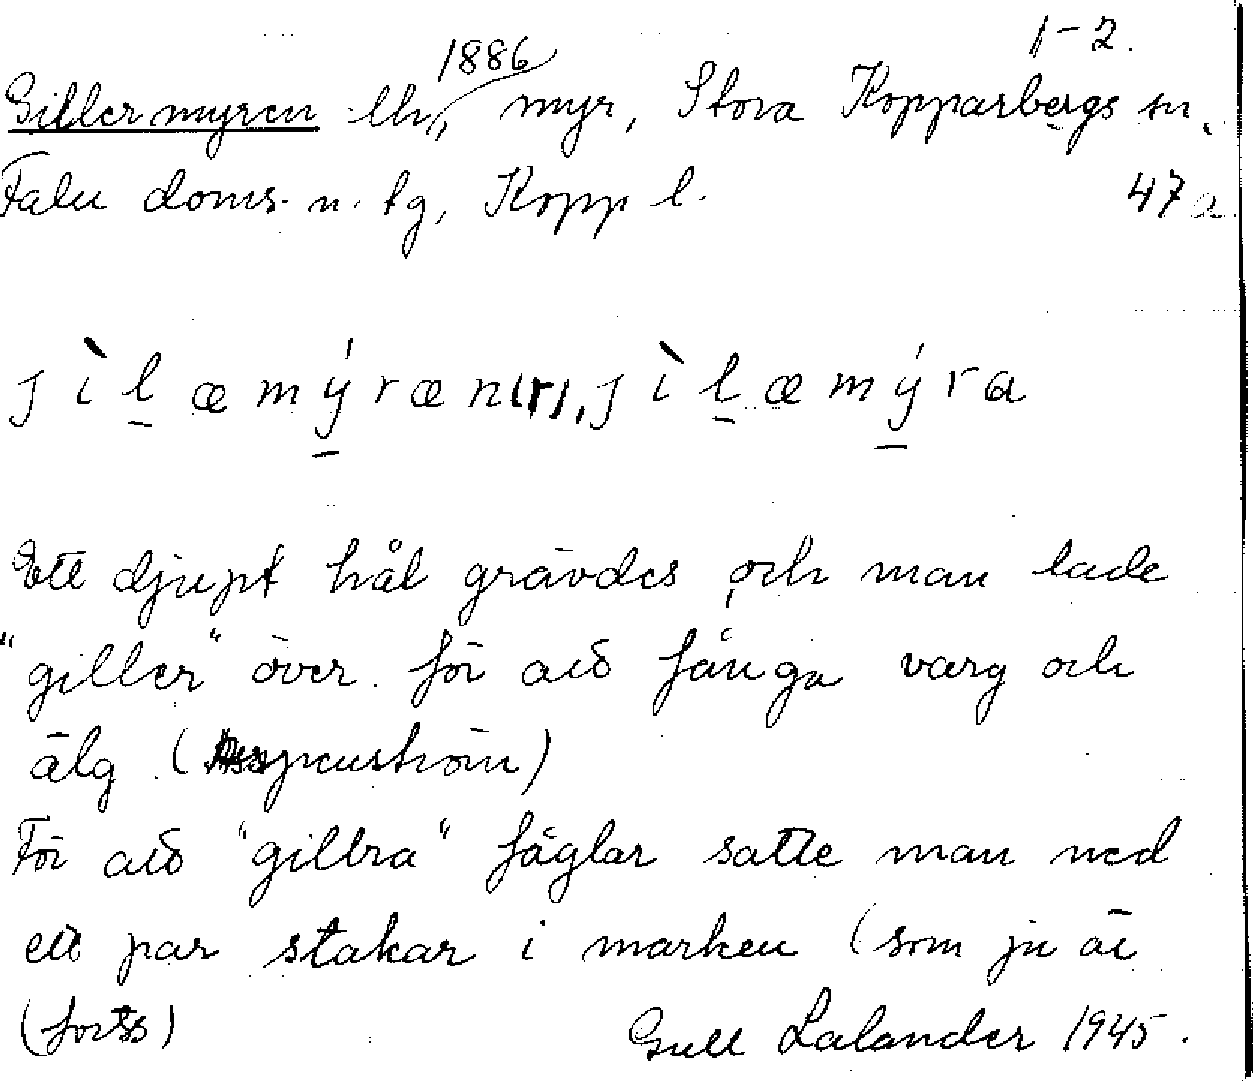 1-2.
1886
Gillermyren ∙ myr, Stora Kopparbergs sn,
Falu doms. n. tg, Kopp l. 47a
j ì l æ m ý r æ n (r), j ì l æ m ý r a
Ett djupt hål grävdes och man lade
"giller" över för att fånga varg och
älg (
För att "gillra" fåglar satte man ned
ett par stakar i marken (som ju är
(forts) Gull Lalander 1945.